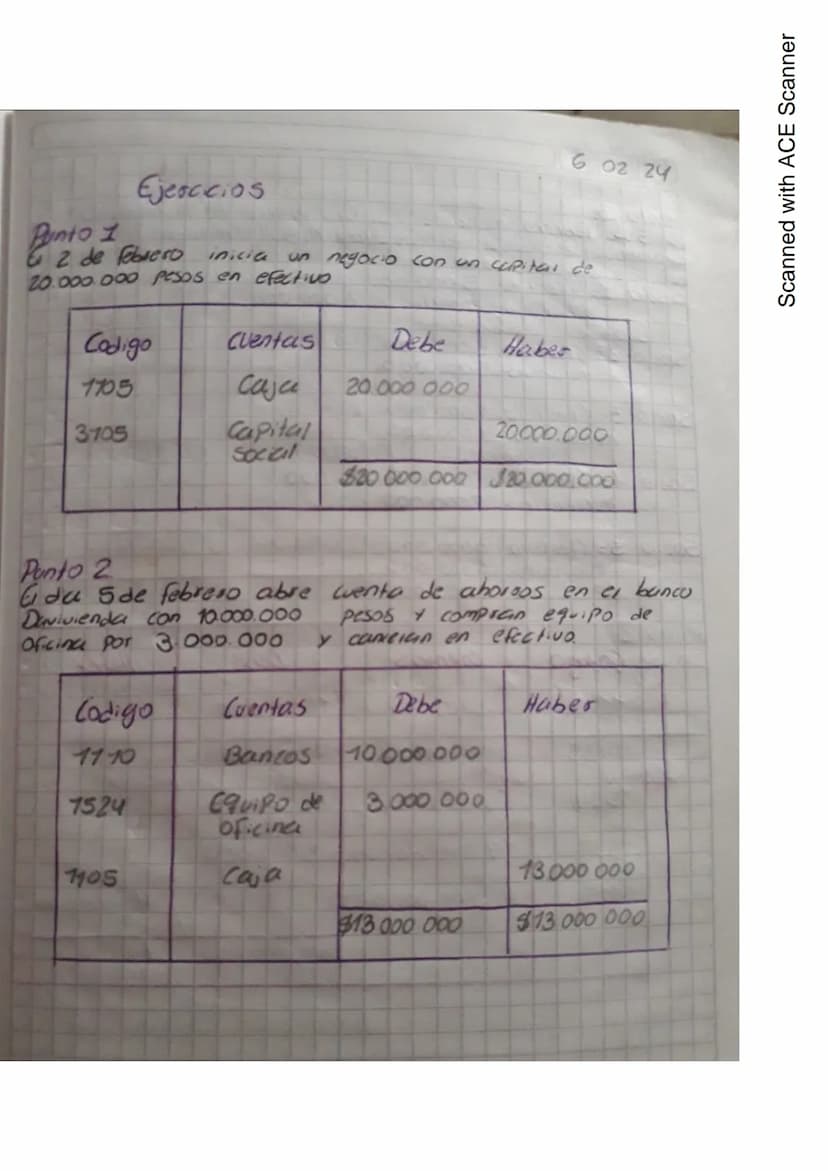 6 02 24
Ejercicios
Punto 1
El 2 de febrero inicia un negocio con un capital de
20.000.000 pesos en efectivo
Codigo Cuentas Debe Haber
1105 Caja 20.000 000
3105 Capital 20.000.000
social
$20 000.000 $20.000.000
Punto 2
El dia 5 de febrero abre cuenta de ahorros en el banco
Davivienda con 10.000.000 pesos y compran equipo de
oficina por 3.000.000 y cancelan en efectivo
Codigo Cuentas Debe Haber
1110 Bancos 10.000.000
1524 Equipo de 3.000.000
oficina
1105 Caja 13.000 000
$13 000 000 $13 000 000
Scanned with ACE Scanner